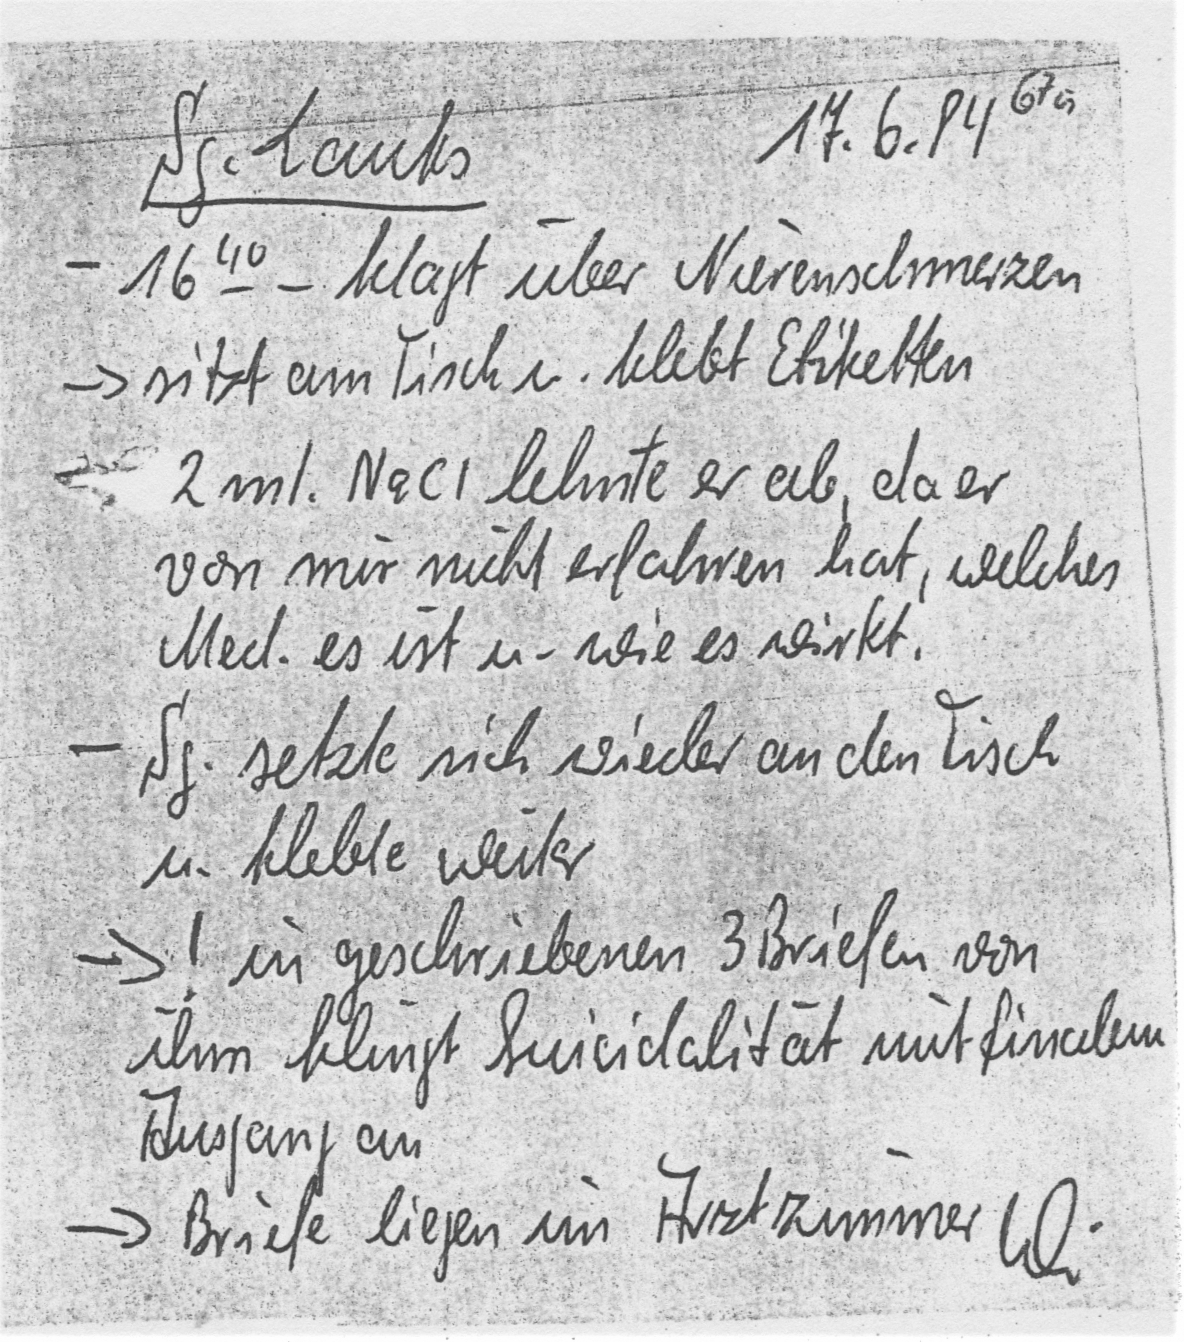 Sg. Lauks 17.6.84 67
- 16 40 - klagt über Nierenschmerzen
→ sitzt am Tisch u. klebt Etiketten
2 ml. NaCl lehnte er ab, da er
von mir nicht erfahren hat, welches
Med. es ist u. wie es wirkt.
- Sg. setzte sich wieder an den Tisch
u. klebte weiter
→ ! in geschriebenen 3 Briefen von
ihm klingt Suicidalität mit finalem
Ausgang an
→ Briefe liegen im Arztzimmer